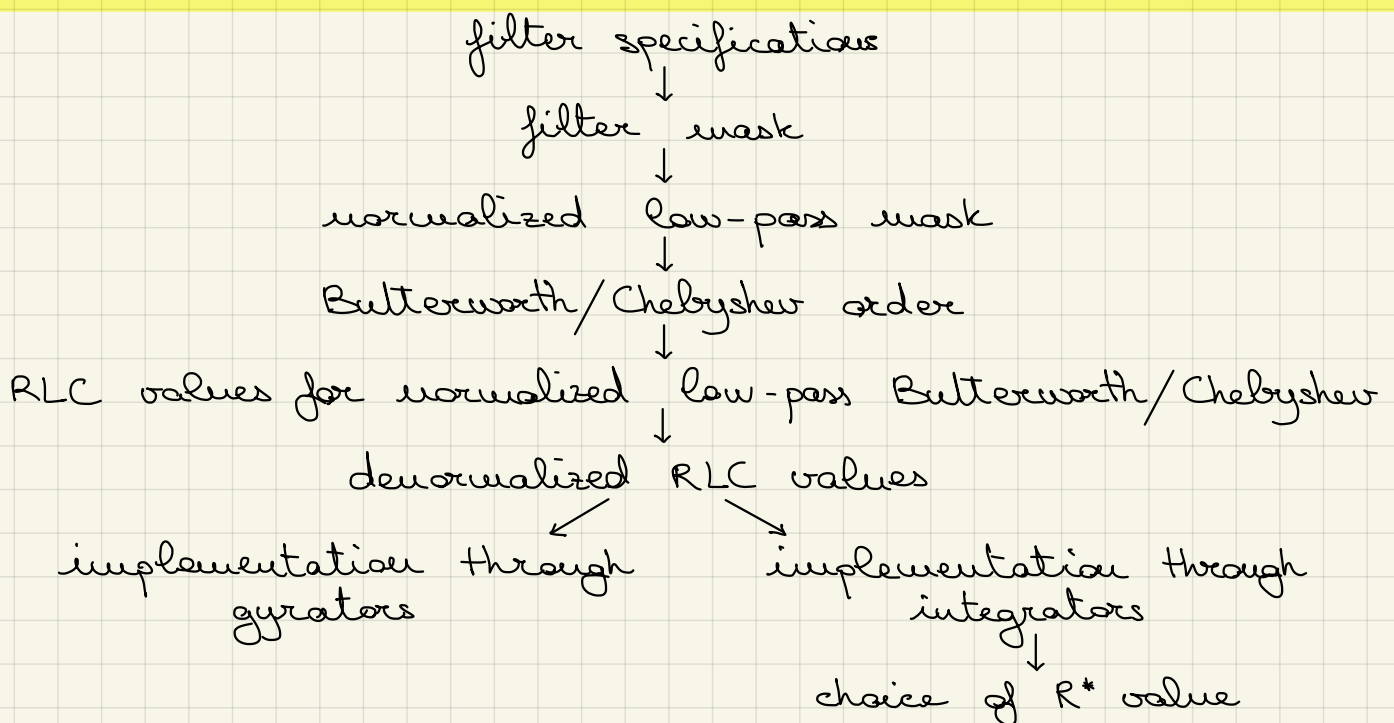 filter specifications
filter mask
normalized low-pass mask
Butterworth/Chebyshev order
RLC values for normalized low-pass Butterworth/Chebyshev
denormalized RLC values
implementation through
gyrators
implementation through
integrators
choice of R* value